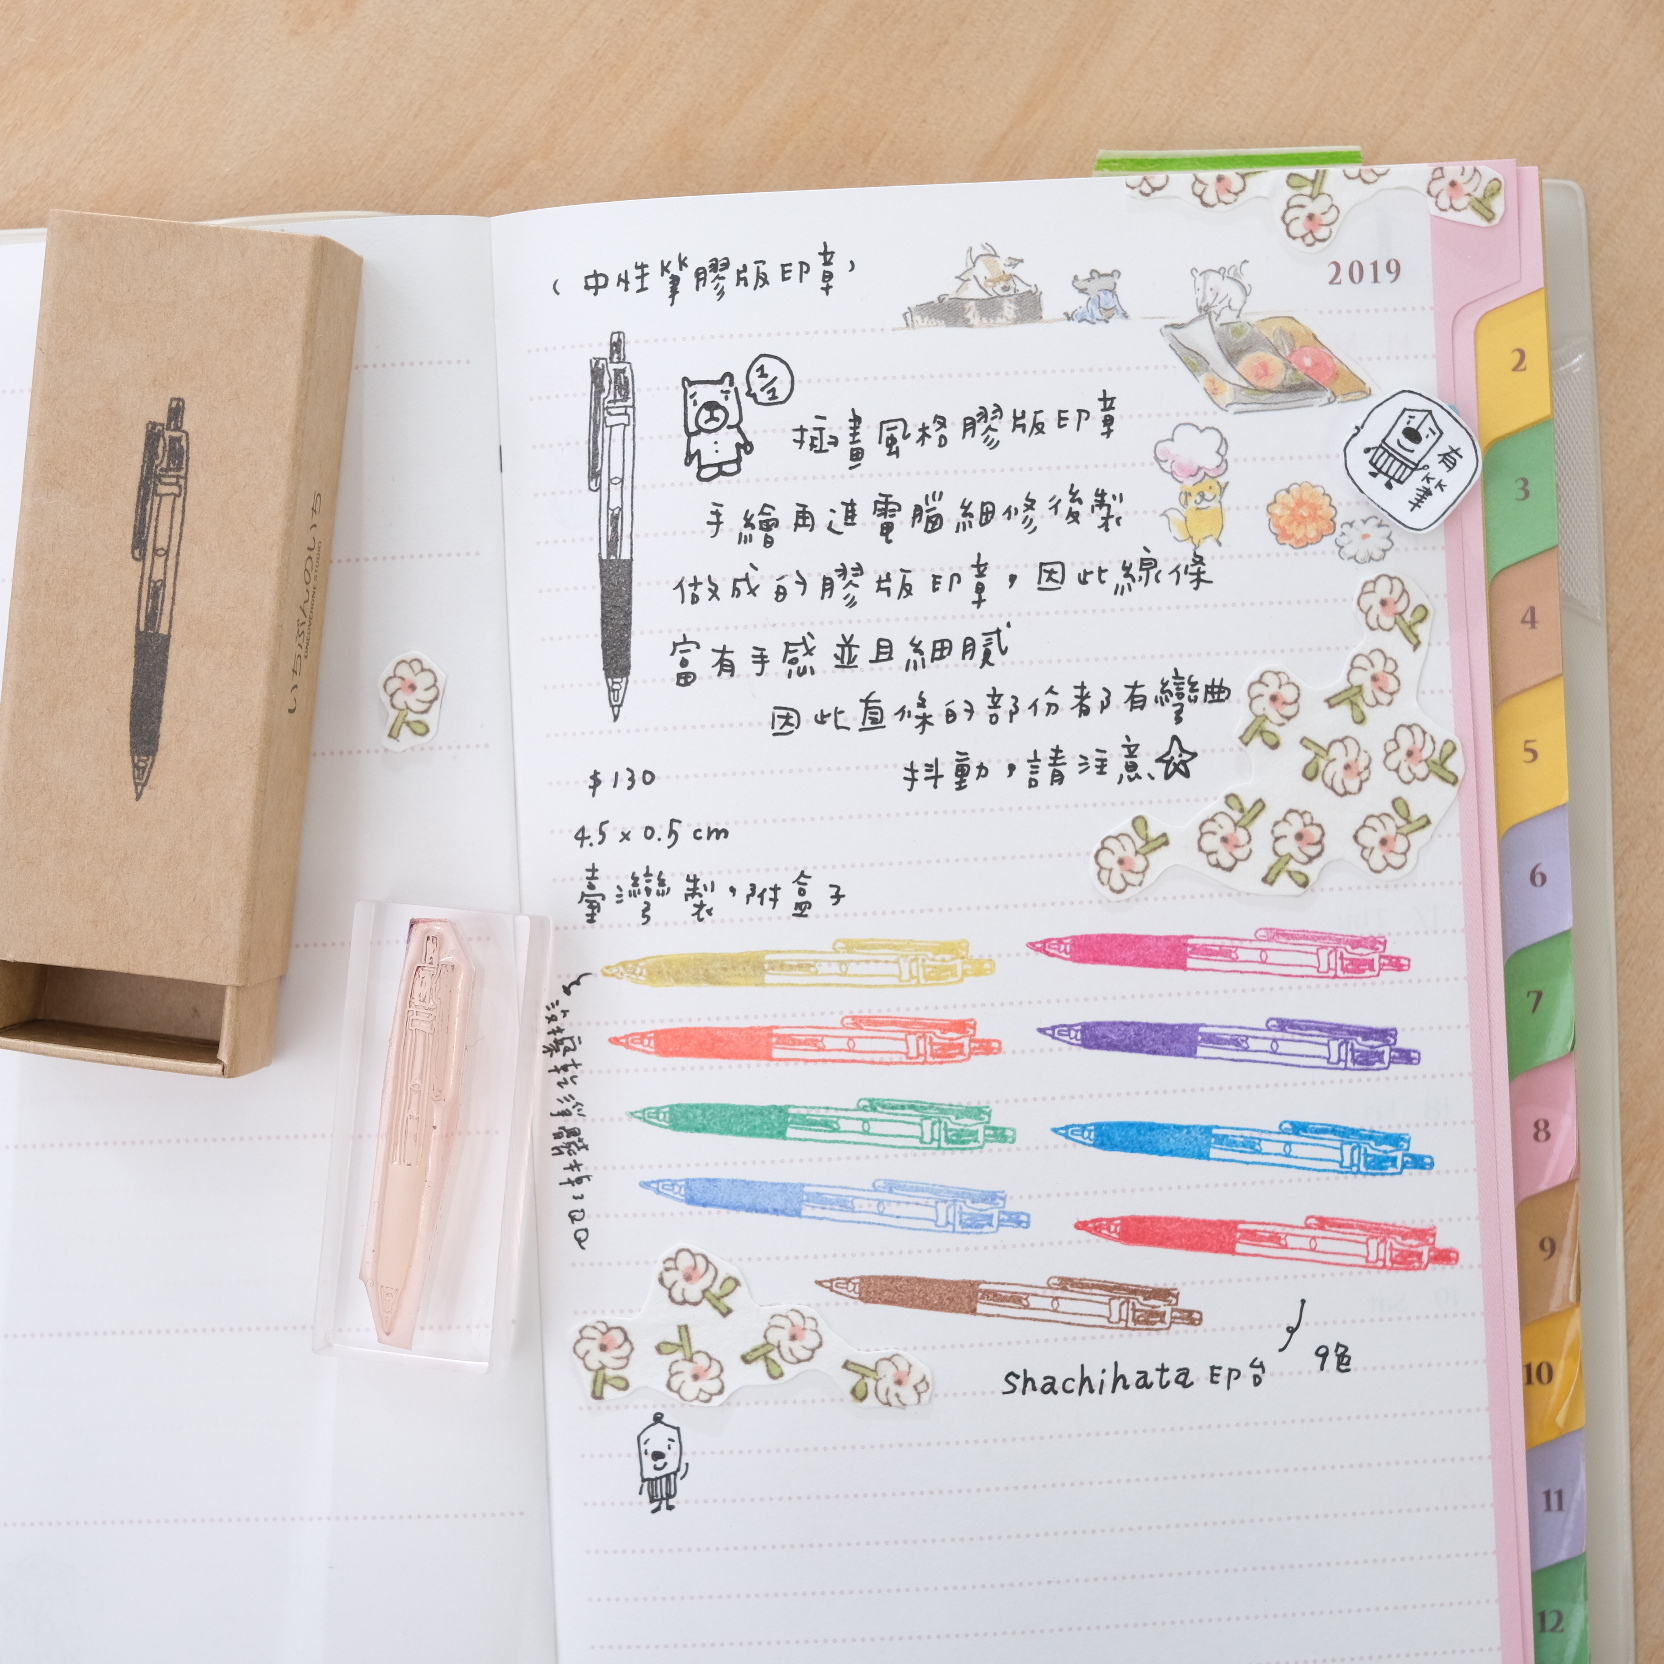 中性筆膠版印章
2019
1/1
插畫風格膠版印章
有筆
手繪再進電腦細修後製
做成的膠版印章，因此線條
富有手感並且細膩
因此直條的部份都有彎曲
抖動，請注意☆
$130
4.5 x 0.5 cm
臺灣製，附盒子
沒擦乾淨髒掉了QQ
shachihata 印台
9色
いちぶんのいち
2
3
4
5
6
7
8
9
10
11
12